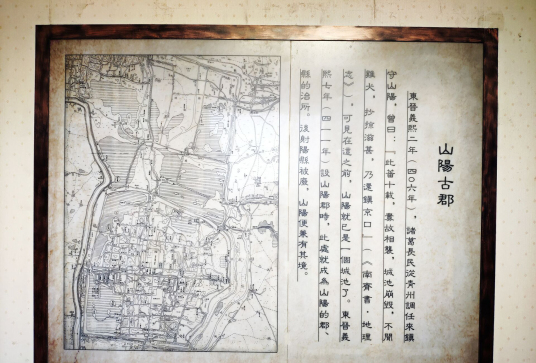 山陽古郡
東晉義熙二年（四〇六年），諸葛長民從青州調任來鎮
守山陽，嘗曰：「此蕃十載，釁故相襲，城池崩毀，不聞
雞犬，抄掠滋甚，乃還鎮京口」（《南齊書·地理
志》），可見在這之前，山陽就已是一個城池了。東晉義
熙七年（四一一年）設山陽郡時，此處就成為山陽的郡、
縣的治所。後射陽縣被廢，山陽便兼有其境。